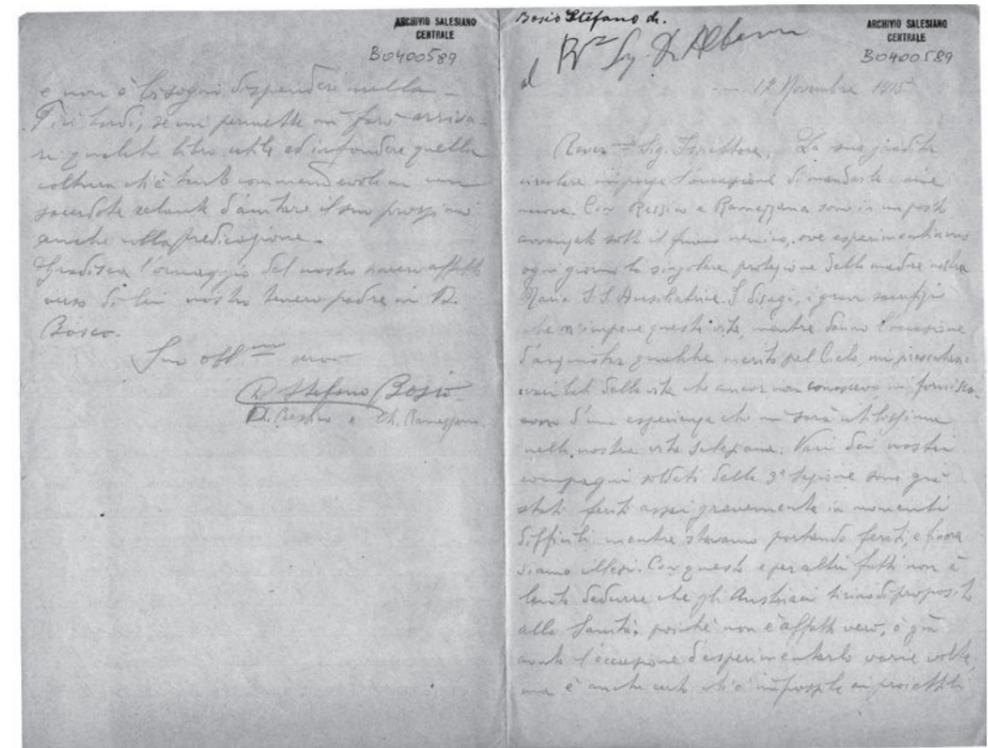 ARCHIVIO SALESIANO
CENTRALE
B0400589
e non è bisogni dispendere nulla –
Più tardi, se mi permette mi farò arriva-
re qualche libro utile ed infondere quella
coltura ch'è tanto commendevole in un
sacerdote zelante d'aiutare il suo prossimo
anche colla predicazione.
Gradisca l'omaggio del nostro affetto
verso di Lei nostro tenero padre in D.
Bosco.
Suo aff.mo servo
D. Stefano Bosio
D. Ressino e Ch. Ramezzana
Bosio Stefano dr.
al R.mo Sig. D. Albera
ARCHIVIO SALESIANO
CENTRALE
B0400589
17 Novembre 1915
Rever.mo Sig. Direttore, La sua gradita
circolare mi porge l'occasione di mandarle mie
nuove. Con Ressino e Ramezzana sono in un posto
avanzato sotto il fuoco nemico, ove esperimentiamo
ogni giorno la singolare protezione della madre nostra
Maria S.S. Ausiliatrice. I disagi, i gravi sacrifizi
che m'impone questa vita, mentre danno l'occasione
d'acquistar qualche merito pel Cielo, mi presentano
varietà della vita che ancor non conoscevo mi fornisco-
no d'una esperienza che mi sarà utilissima
nella nostra vita salesiana. Vari dei nostri
compagni soldati della 3ª sezione sono già
stati feriti assai gravemente in momenti
difficili mentre stavamo portando feriti, e finora
siamo illesi. Con questo e per altri fatti non è
lecito dedurre che gli Austriaci tirino di proposito
alla Sanità, poiché non è affatto vero, e già
avuto l'occasione d'esperimentarlo varie volte
ma è anche certo ch'è impossibile ai proiettili